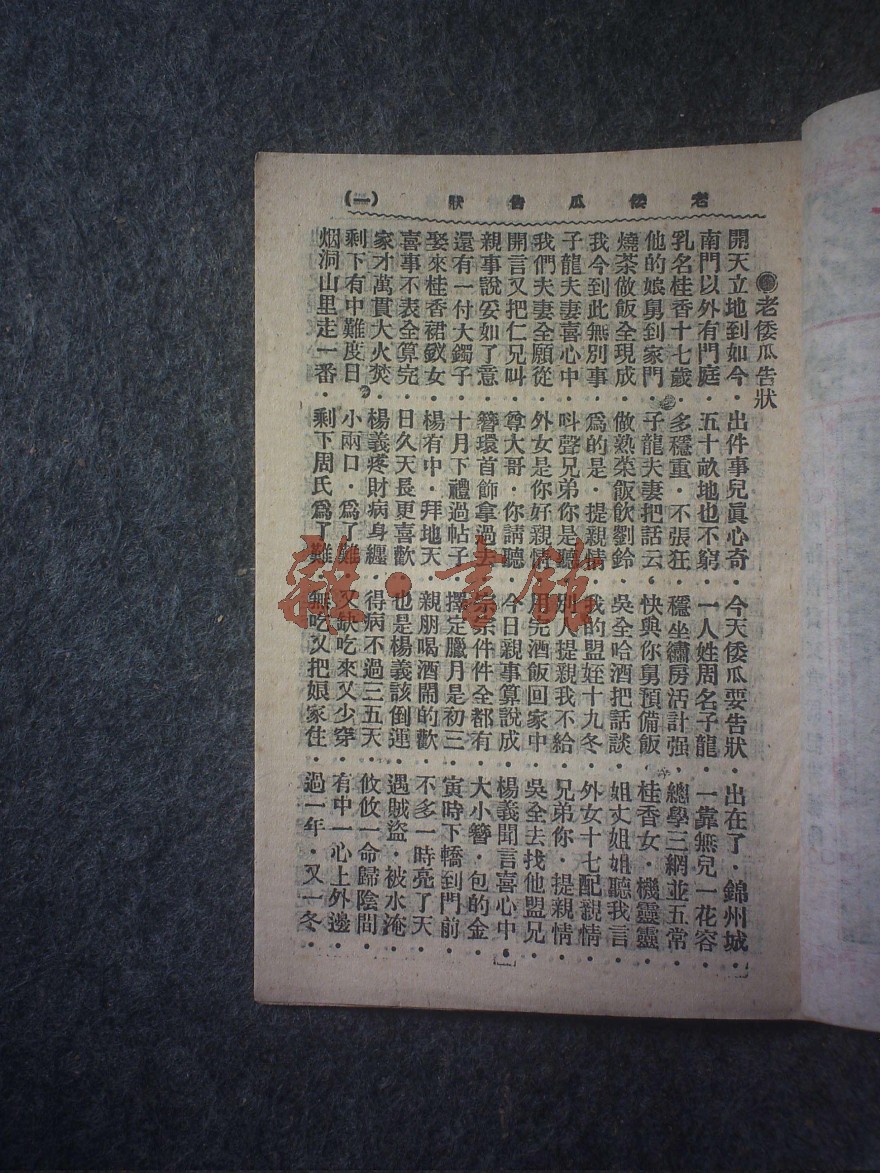 老倭瓜告狀 (一)
老倭瓜告狀
開天立地到如今・出件事兒眞心奇・今天倭瓜要告狀・出在了・錦州城・
南門以外有門庭・五十畝地也不窮・一人姓周名子龍・一靠無兒一花容・
乳名桂香十七歲・多穩重・不張狂・穩坐繡房活計强・總學三網並五常・
他的娘舅到家門・子龍夫妻把話云・快與你舅預備飯・桂香女・機靈靈・
燒茶做飯全現成・做熟菜飯飲劉鈴・吳全哈酒把話談・姐丈姐姐聽我言・
我今到此無別事・爲的是・提親情・我的盟姪十九冬・外女十七配親情・
子龍夫妻喜心中・呌聲兄弟你是聽・別人提親我不給・兄弟你・提親情・
我們夫妻全願從・外女是你好親情・用完酒飯回家中・吳全去找他盟兄・
開言又把仁兄叫・尊大哥・你請聽・今日親事算說成・楊義聞言喜心中・
親事說妥如了意・簪環首飾拿過去・宗宗件件全都有・大小簪・包的金・
還有一付大鐲子・十月下禮過帖子・擇定臘月是初三・寅時下轎到門前・
娶來桂香裙釵女・楊有中・拜地天・親朋喝酒鬧的歡・不多一時亮了天・
喜事不表全算完・日久天長更喜歡・也是楊義該倒運・遇賊盜・被水淹・
家才萬貫大火焚・楊義疼財病身纏・得病不過三五天・攸攸一命歸陰間・
剩下有中難度日・小兩口・爲了難・又缺吃來又少穿・有中一心上外邊・
烟洞山里走一番・剩下周氏爲了難・無吃又把娘家住・過一年・又一冬・
雜·書館